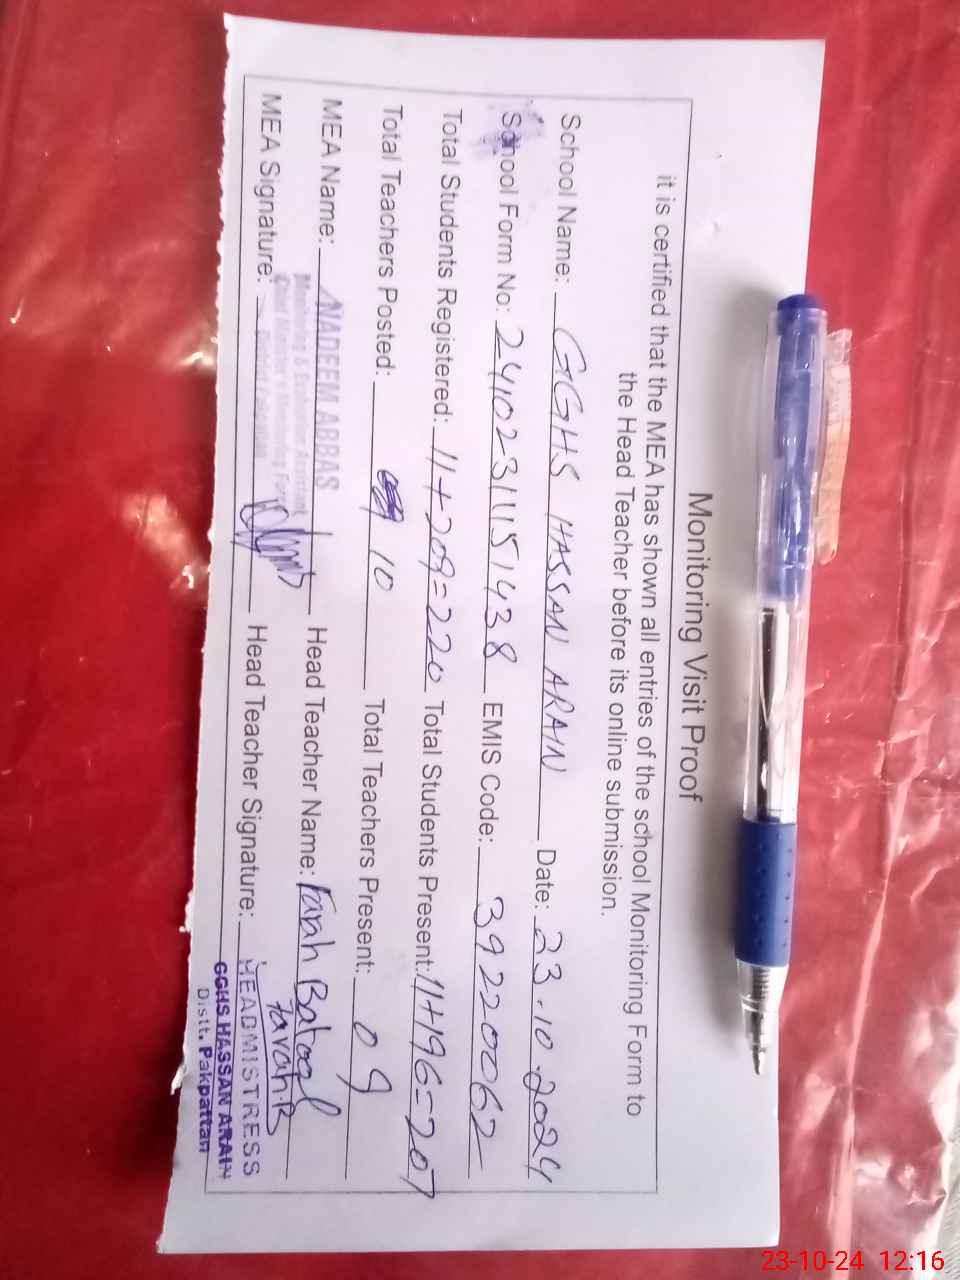 Monitoring Visit Proof
it is certified that the MEA has shown all entries of the school Monitoring Form to
the Head Teacher before its online submission.
School Name: GGHS HASSAN ARAIN Date: 23.10.2024
School Form No: 24102311151438 EMIS Code: 39220062
Total Students Registered: 11+209=220 Total Students Present: 11+196=207
Total Teachers Posted: 10 Total Teachers Present: 09
MEA Name: NADEEM ABBAS Head Teacher Name: Farah Batool
Monitoring & Evaluation Assistant
Chief Minister's Monitoring Force
MEA Signature: Head Teacher Signature: Farah.B
HEADMISTRESS
GGHS HASSAN ARAIN
Distt. Pakpattan
23-10-24 12:16